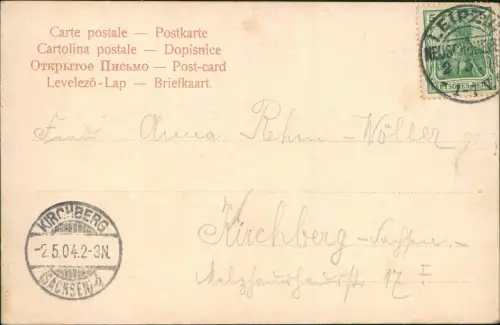 Carte postale — Postkarte
Cartolina postale — Dopisnice
Открытое Письмо — Post-card
Levelező-Lap — Briefkaart.
LEIPZIG
NEUSCHÖNEFELD
Frau Anna Rehm-Nölder
in
Kirchberg-Sachsen
17 I
KIRCHBERG
-2.5.04.2-3N.
(SACHSEN)